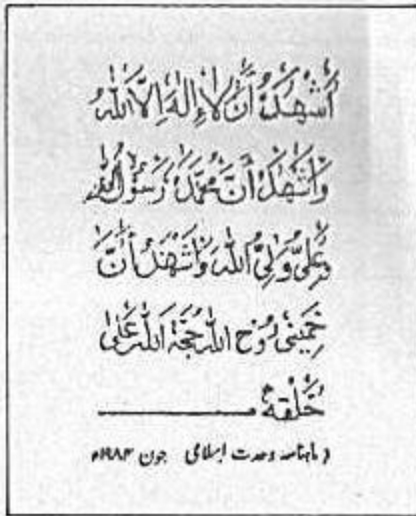 أَشْهَدُ أَنْ لَا إِلٰهَ اِلَّا اللّٰهُ
وَاَشْهَدُ أَنَّ مُحَمَّدَ رَسُوْلُ اللّٰهِ
وَعَلِىٌّ وَلِىُّ اللّٰهِ وَاَشْهَدُ أَنَّ
خُمَيْنِىْ رُوْحُ اللّٰهِ حُجَّةُ اللّٰهِ عَلٰى
خَلْقِهٖ
(ماہنامہ وحدت اسلامی جون ۱۹۸۴ء